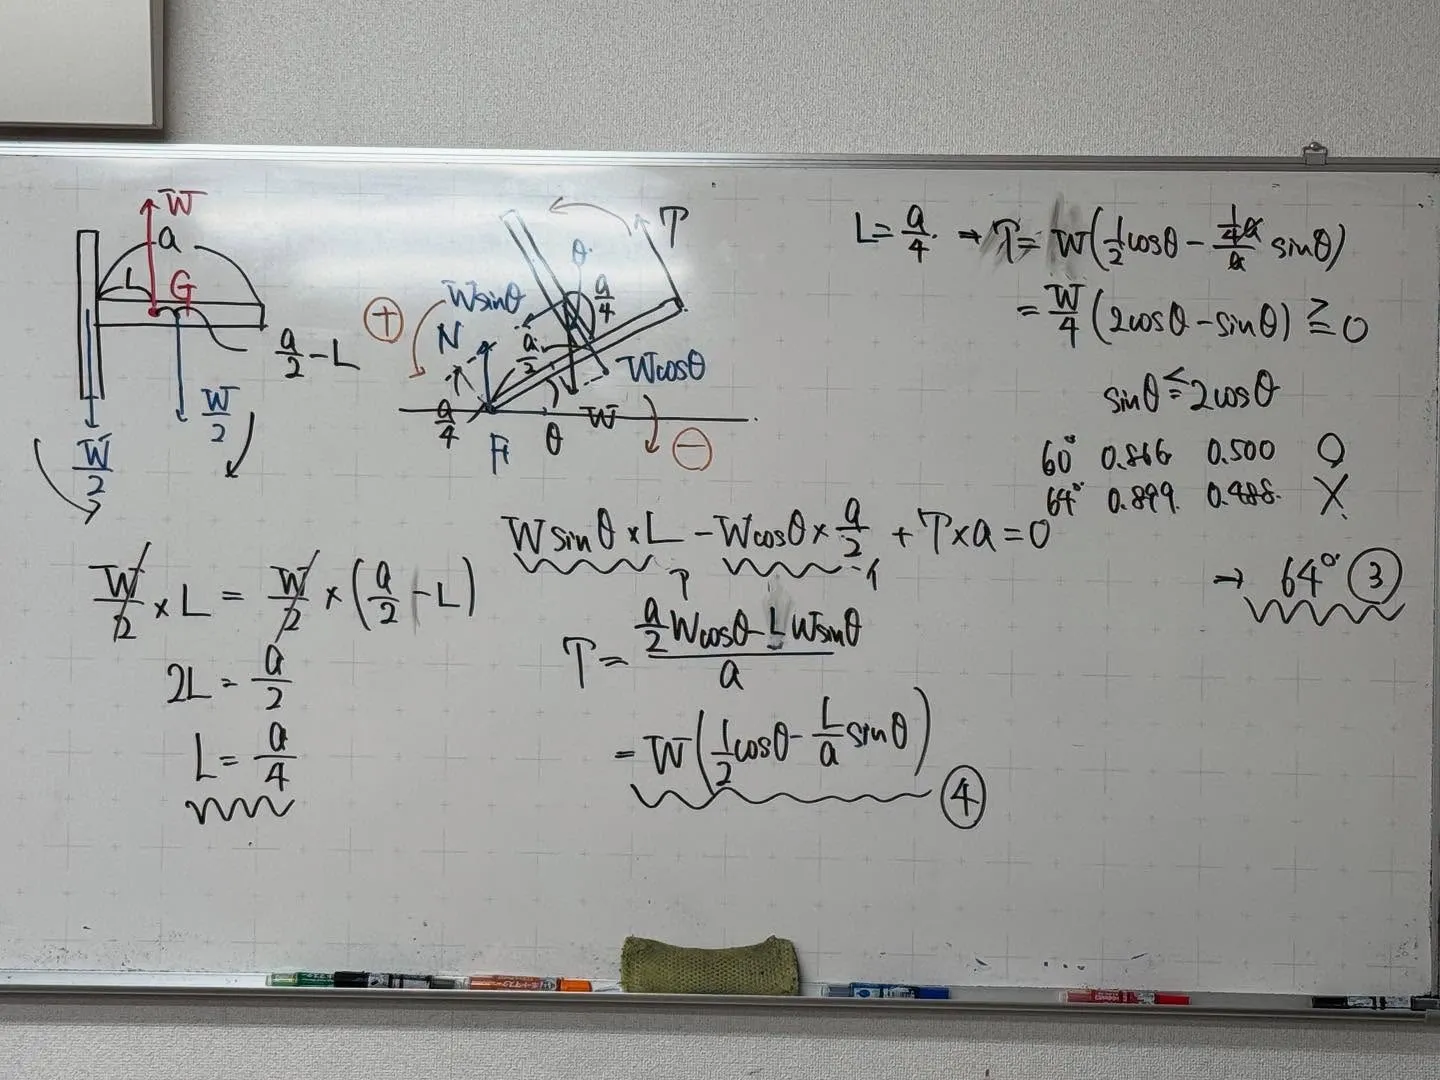 W
a
L
G
a/2 - L
W/2
W/2
⊕
Wsinθ
N
θ
a/4
T
a/2
Wcosθ
a/4
W
θ
⊖
W/2 × L = W/2 × (a/2 - L)
2L = a/2
L = a/4
Wsinθ × L - Wcosθ × a/2 + T × a = 0
T = (a/2 Wcosθ - L Wsinθ)/a
= W(1/2 cosθ - L/a sinθ)
④
L = a/4 → T = W(1/2 cosθ - (1/4 a)/a sinθ)
= W/4 (2cosθ - sinθ) ≧ 0
sinθ ≦ 2cosθ
60° 0.866 0.500 ○
64° 0.899 0.488 ×
→ 64° ③